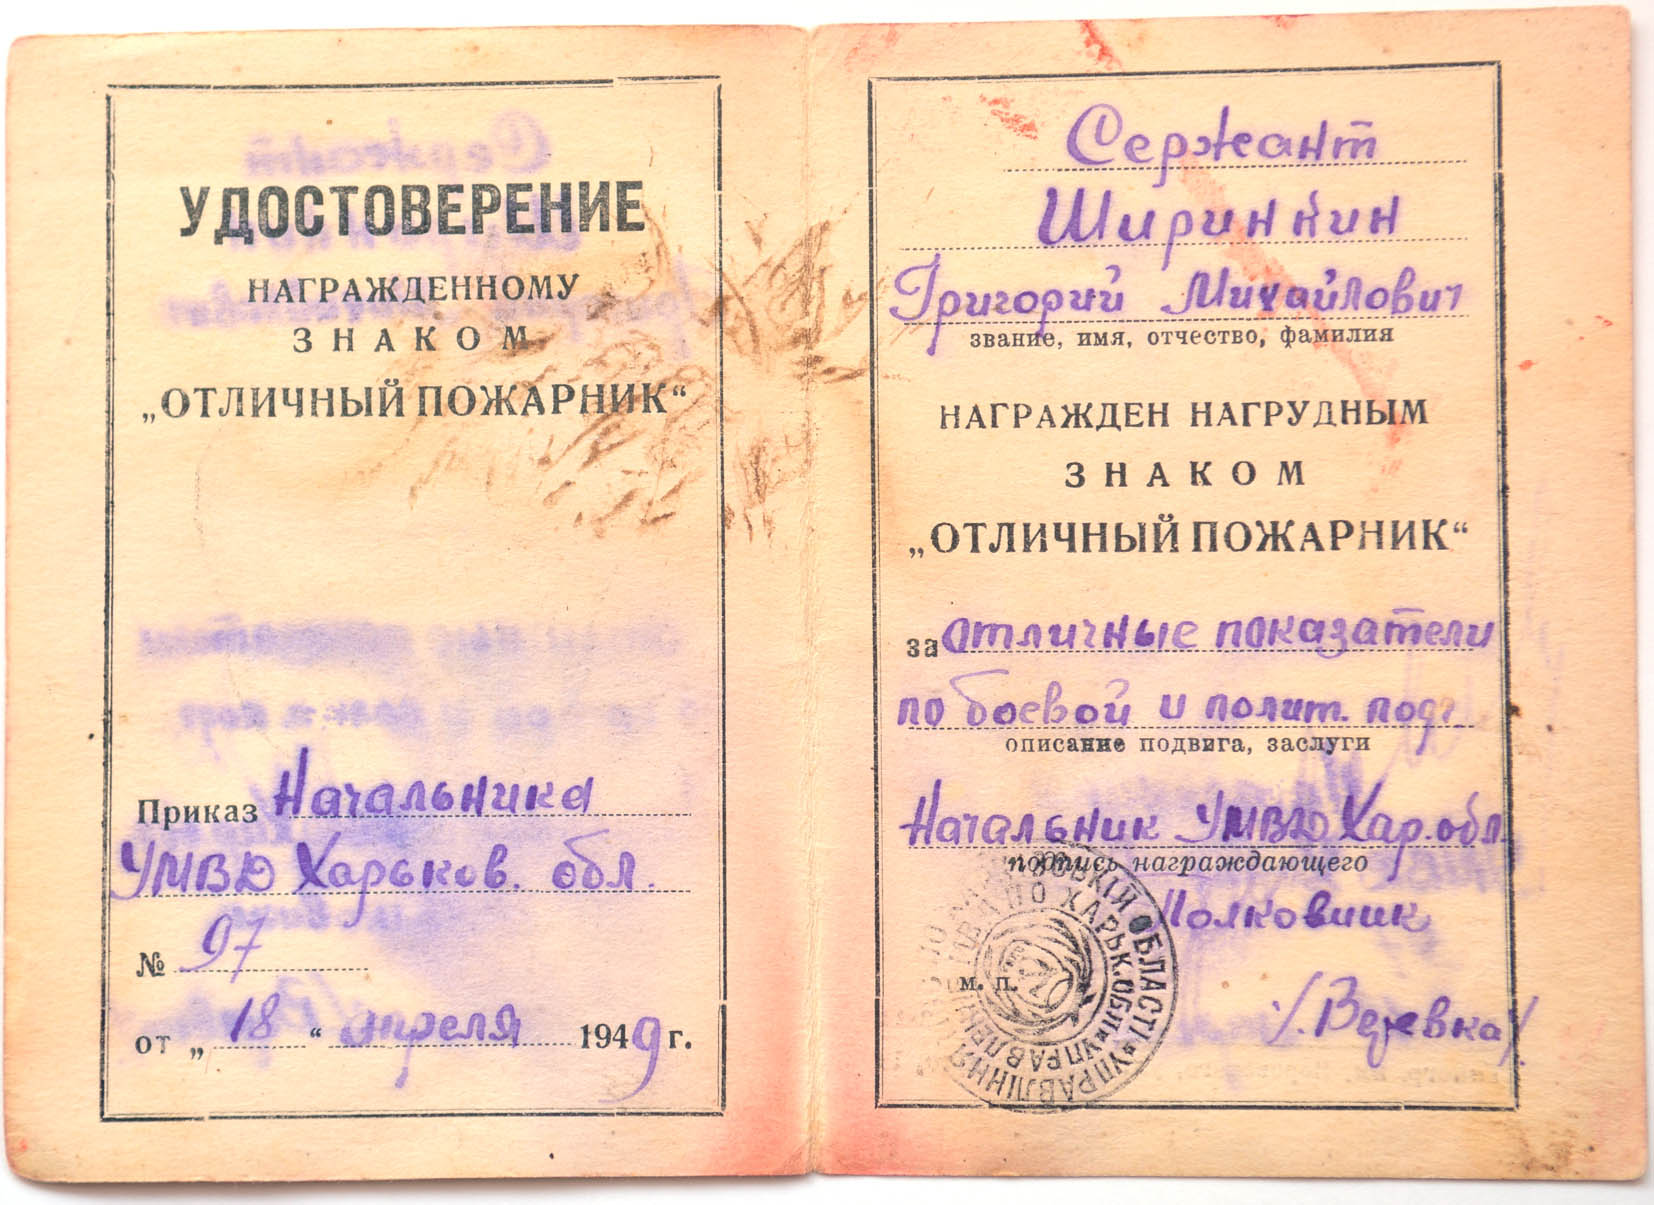 УДОСТОВЕРЕНИЕ
НАГРАЖДЕННОМУ
ЗНАКОМ
„ОТЛИЧНЫЙ ПОЖАРНИК“
Приказ Начальника
УМВД Харьков. обл.
№ 97
от „ 18 “ апреля 1949 г.
Сержант
Ширинкин
Григорий Михайлович
звание, имя, отчество, фамилия
НАГРАЖДЕН НАГРУДНЫМ
ЗНАКОМ
„ОТЛИЧНЫЙ ПОЖАРНИК“
за отличные показатели
по боевой и полит. подг
описание подвига, заслуги
Начальник УМВД Хар. обл.
подпись награждающего
Полковник
м. п.
/Веревка/
ОБЛАСТІ * УПРАВЛІННЯ
ПО ХАРЬК. ОБЛ * УПРАВЛЕН